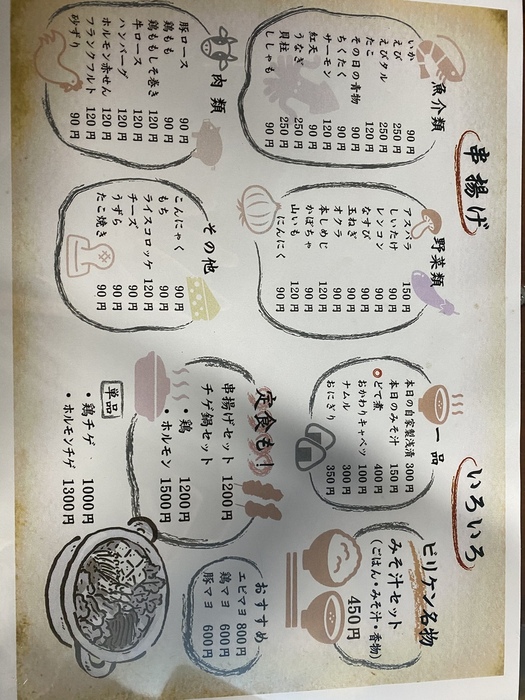 串揚げ
魚介類
いか 90円
えび 250円
えびタル 250円
たこ 120円
その日の青物 90円
ちくたく 90円
サーモン 120円
紅天 90円
うなぎ 250円
貝柱 250円
ししゃも 90円
野菜類
アスパラ 150円
しいたけ 90円
レンコン 90円
なすび 90円
玉ねぎ 90円
オクラ 90円
本しめじ 120円
かぼちゃ 90円
山いも 120円
にんにく 90円
肉類
豚ロース 90円
鶏もも 90円
鶏ももしそ巻き 120円
牛ロース 120円
ハンバーグ 120円
ホルモン赤せん 120円
フランクフルト 120円
砂ずり 90円
その他
こんにゃく 90円
もち 90円
ライスコロッケ 120円
チーズ 90円
うずら 90円
たこ焼き 90円
いろいろ
一品
本日の自家製浅漬 300円
本日のみそ汁 150円
どて煮 400円
おかわりキャベツ 100円
ナムル 300円
おにぎり 350円
ビリケン名物
みそ汁セット
(ごはん・みそ汁・香物)
450円
定食も!
串揚げセット 1200円
チゲ鍋セット
・鶏 1200円
・ホルモン 1500円
単品
・鶏チゲ 1000円
・ホルモンチゲ 1300円
おすすめ
エビマヨ 800円
鶏マヨ 600円
豚マヨ 600円